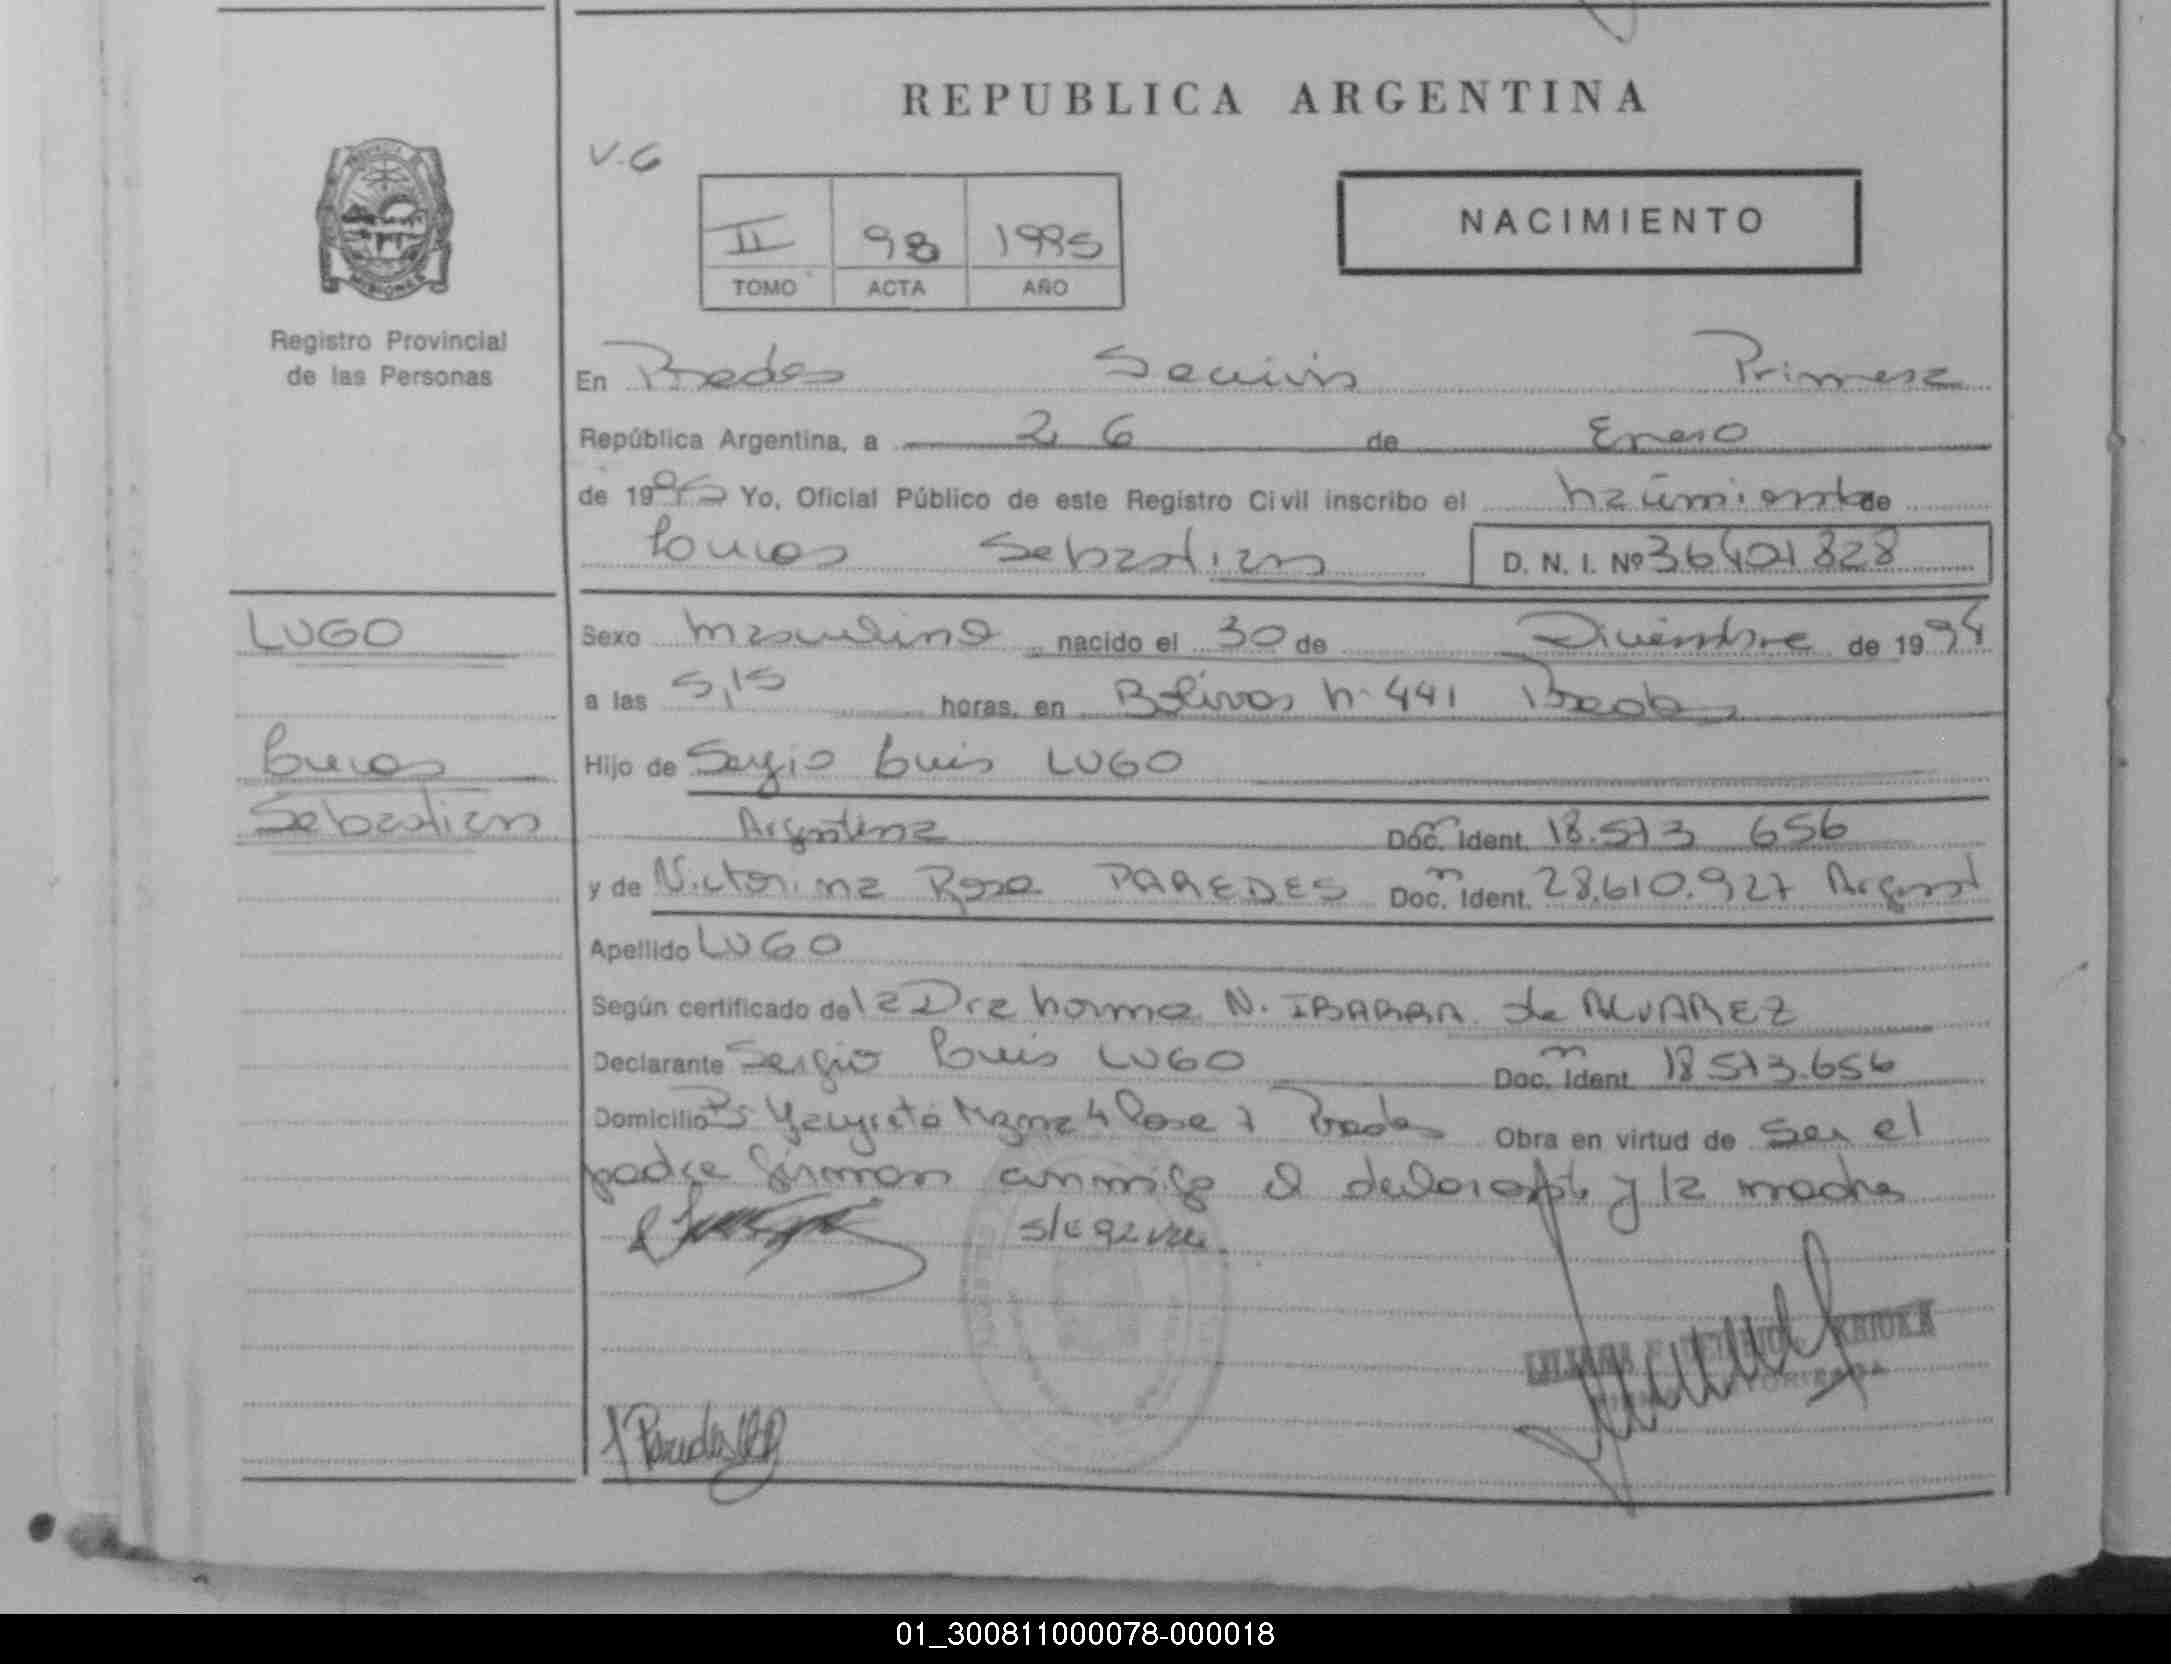 REPUBLICA ARGENTINA
V.G
II 98 1995
TOMO ACTA AÑO
NACIMIENTO
PROVINCIA
MISIONES
Registro Provincial
de las Personas
En Posadas Sección Primera
República Argentina, a 26 de Enero
de 1995 Yo, Oficial Público de este Registro Civil inscribo el nacimiento de
Lucas Sebastian D. N. I. Nº 36401828
LUGO
Lucas
Sebastian
Sexo masculino nacido el 30 de Diciembre de 1994
a las 5,15 horas, en Bolivar n. 441 Posadas
Hijo de Sergio Luis LUGO
Argentina Doc. Ident. 18.573 656
y de Victorina Rosa PAREDES Doc. Ident. 28.610.927 Argent
Apellido LUGO
Según certificado de la Dra Norma N. IBARRA de ALVAREZ
Declarante Sergio Luis LUGO Doc. Ident. 18 573.656
Domicilio Bº Yacyretá Mzna 4 Casa 7 Posadas Obra en virtud de ser el
padre firman conmigo el declarante y la madre
01_300811000078-000018